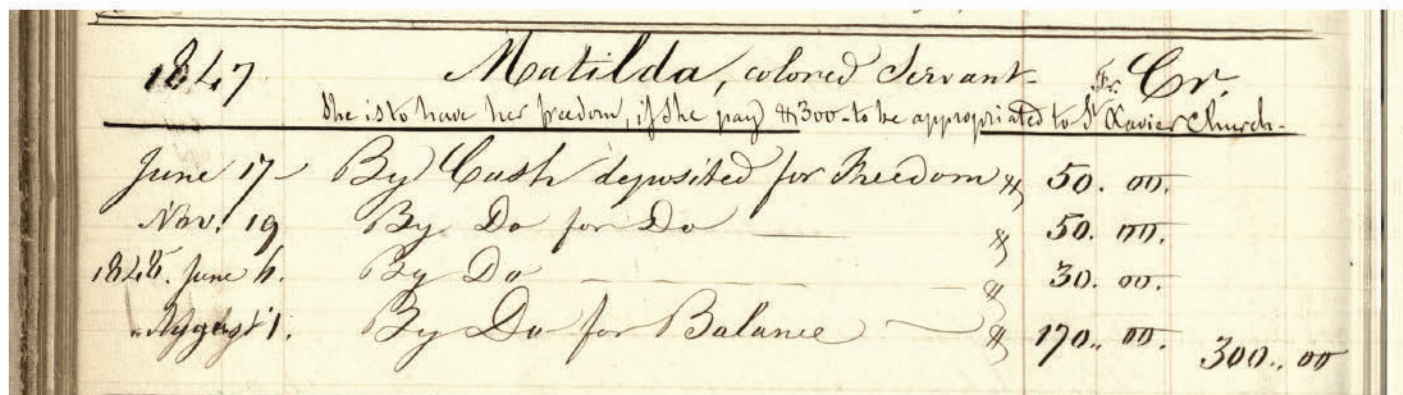 1847 Matilda, colored Servant - Fr. Cr.
She is to have her freedom, if she pay $300 - to be appropriated to St Xavier Church -
June 17 - By Cash deposited for Freedom $ 50. 00.
Nov. 19 By Do for Do $ 50. 00.
1848. June 6. By Do $ 30. 00.
" August 1. By Do for Balance $ 170.. 00. 300.. 00